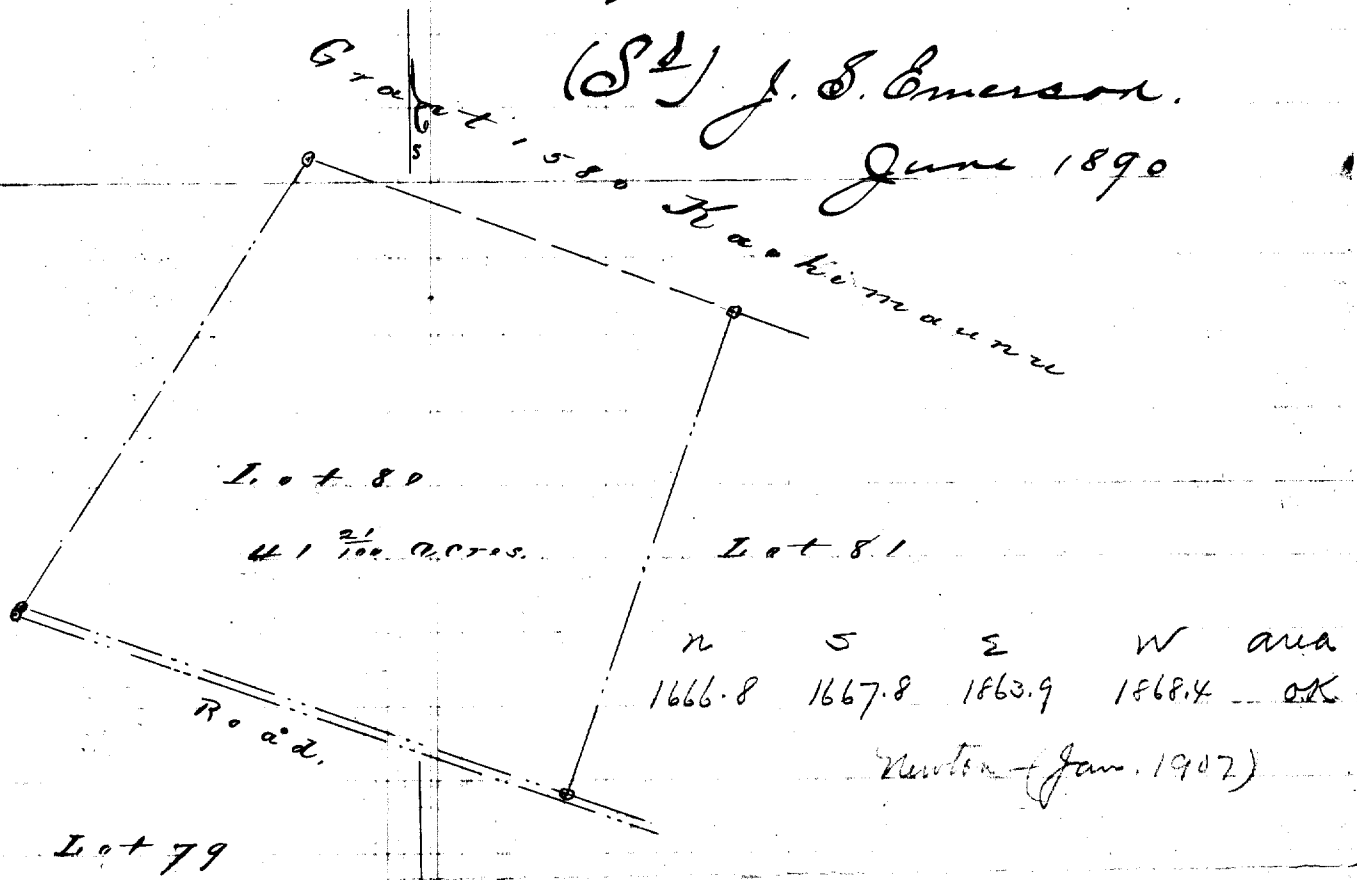 (Sd) J. S. Emerson.
June 1890
Grant 1580 Kaohimaunu
s
Lot 80
41 21/100 acres.
Lot 81
N S E W area
1666.8 1667.8 1863.9 1868.4 OK
Newton (Jan. 1902)
Road.
Lot 79